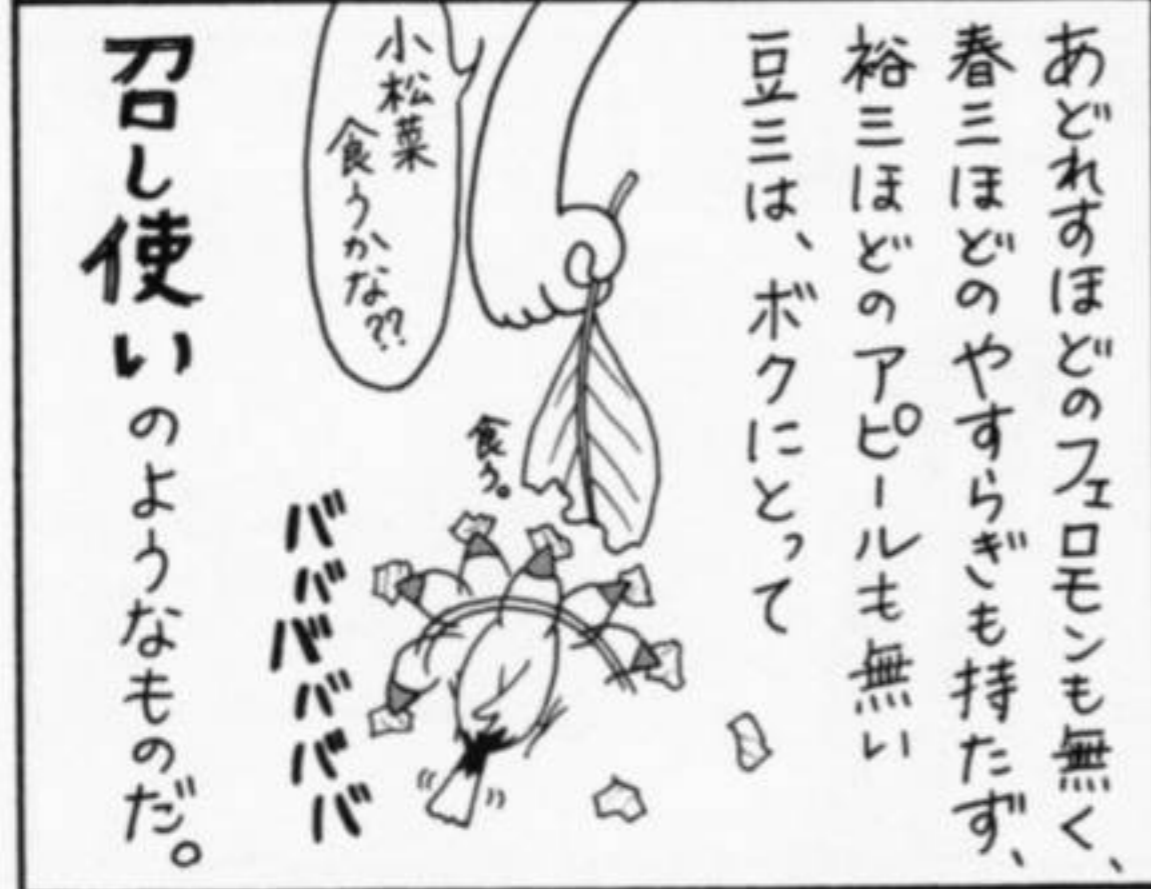 あどれすほどのフェロモンも無く、
春三ほどのやすらぎも持たず、
裕三ほどのアピールも無い
豆三は、ボクにとって
小松菜
食うかな??
食う。
バババババババ
召し使いのようなものだ。